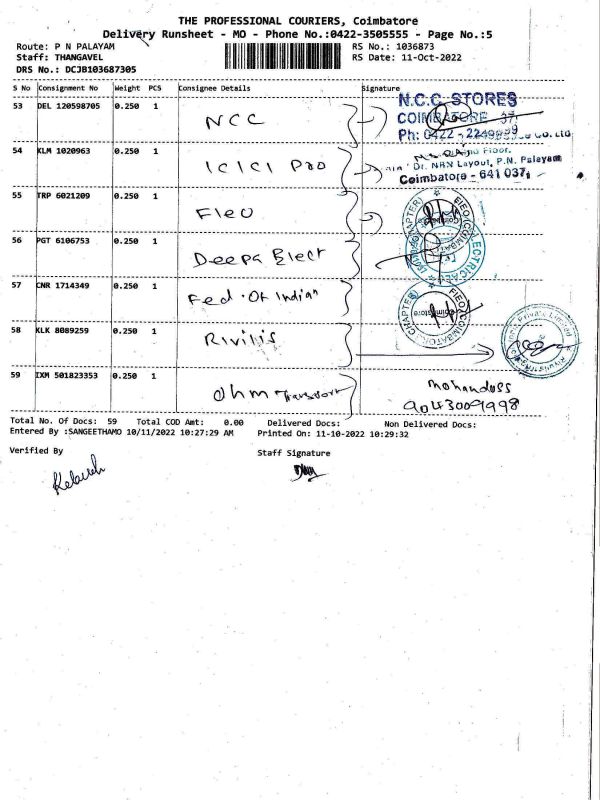 THE PROFESSIONAL COURIERS, Coimbatore
Delivery Runsheet - MO - Phone No.:0422-3505555 - Page No.:5
Route: P N PALAYAM
RS No.: 1036873
Staff: THANGAVEL
RS Date: 11-Oct-2022
DRS No.: DCJB103687305
S No Consignment No Weight PCS Consignee Details Signature
53 DEL 120598705 0.250 1 NCC
N.C.C. STORES
COIMBATORE 37.
Ph: 0422 -
54 KLM 1020963 0.250 1 ICICI Pro
Floor.
NRN Layout, P.N. Palayam
Coimbatore - 641 037
55 TRP 6021209 0.250 1 FIEO
56 PGT 6106753 0.250 1 Deepa Elect
57 CNR 1714349 0.250 1 Fed. Of Indian
58 KLK 8089259 0.250 1 Rivilis
59 IXM 501823353 0.250 1 Ohm Transport
Mohandoss
9043009998
Total No. Of Docs: 59 Total COD Amt: 0.00 Delivered Docs: Non Delivered Docs:
Entered By :SANGEETHAMO 10/11/2022 10:27:29 AM Printed On: 11-10-2022 10:29:32
Verified By Staff Signature